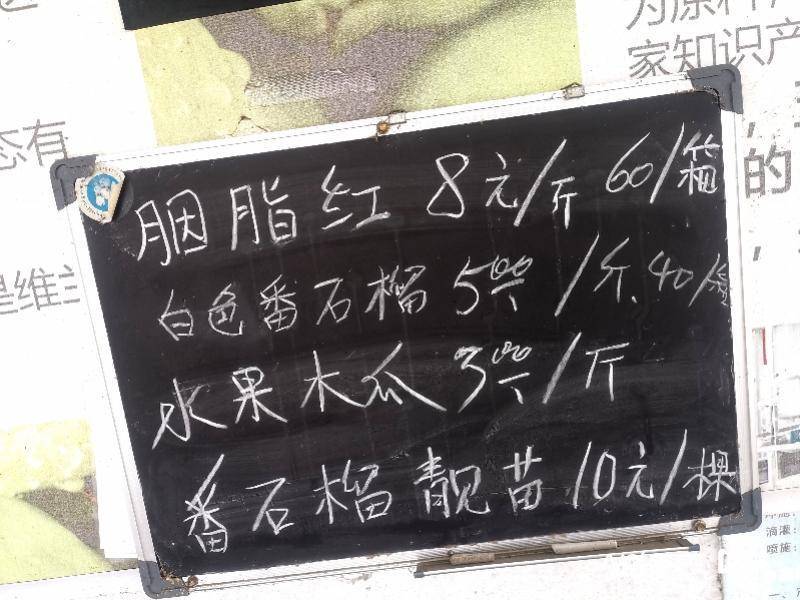 为原料
家知识产
态有
的
是维主
胭脂红 8元/斤 60/箱
白色番石榴 5元/斤、40/盒
水果木瓜 3元/斤
番石榴靓苗 10元/棵
滴灌:
喷施: